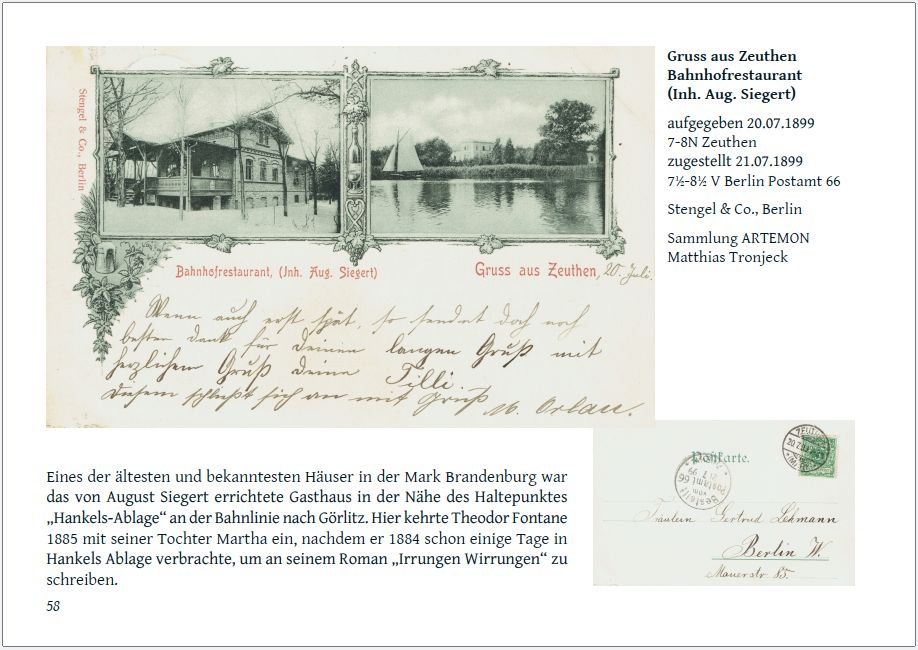 Gruss aus Zeuthen
Bahnhofrestaurant
(Inh. Aug. Siegert)
aufgegeben 20.07.1899
7-8N Zeuthen
zugestellt 21.07.1899
7½-8½ V Berlin Postamt 66
Stengel & Co., Berlin
Sammlung ARTEMON
Matthias Tronjeck
Stengel & Co., Berlin
Bahnhofrestaurant, (Inh. Aug. Siegert)
Gruss aus Zeuthen, 20. Juli.
Wenn auch erst spät, so sendet doch noch
besten Dank für Deinen langen Gruß mit
herzlichem Gruß Deine Tilli.
Diesem schließt sich an mit Gruß
M. Orlau.
Postkarte.
Bestellt
vom
Postamt 66
Fräulein Gertrud Lehmann
Berlin W.
Mauerstr. 85.
Eines der ältesten und bekanntesten Häuser in der Mark Brandenburg war
das von August Siegert errichtete Gasthaus in der Nähe des Haltepunktes
„Hankels-Ablage“ an der Bahnlinie nach Görlitz. Hier kehrte Theodor Fontane
1885 mit seiner Tochter Martha ein, nachdem er 1884 schon einige Tage in
Hankels Ablage verbrachte, um an seinem Roman „Irrungen Wirrungen“ zu
schreiben.
58